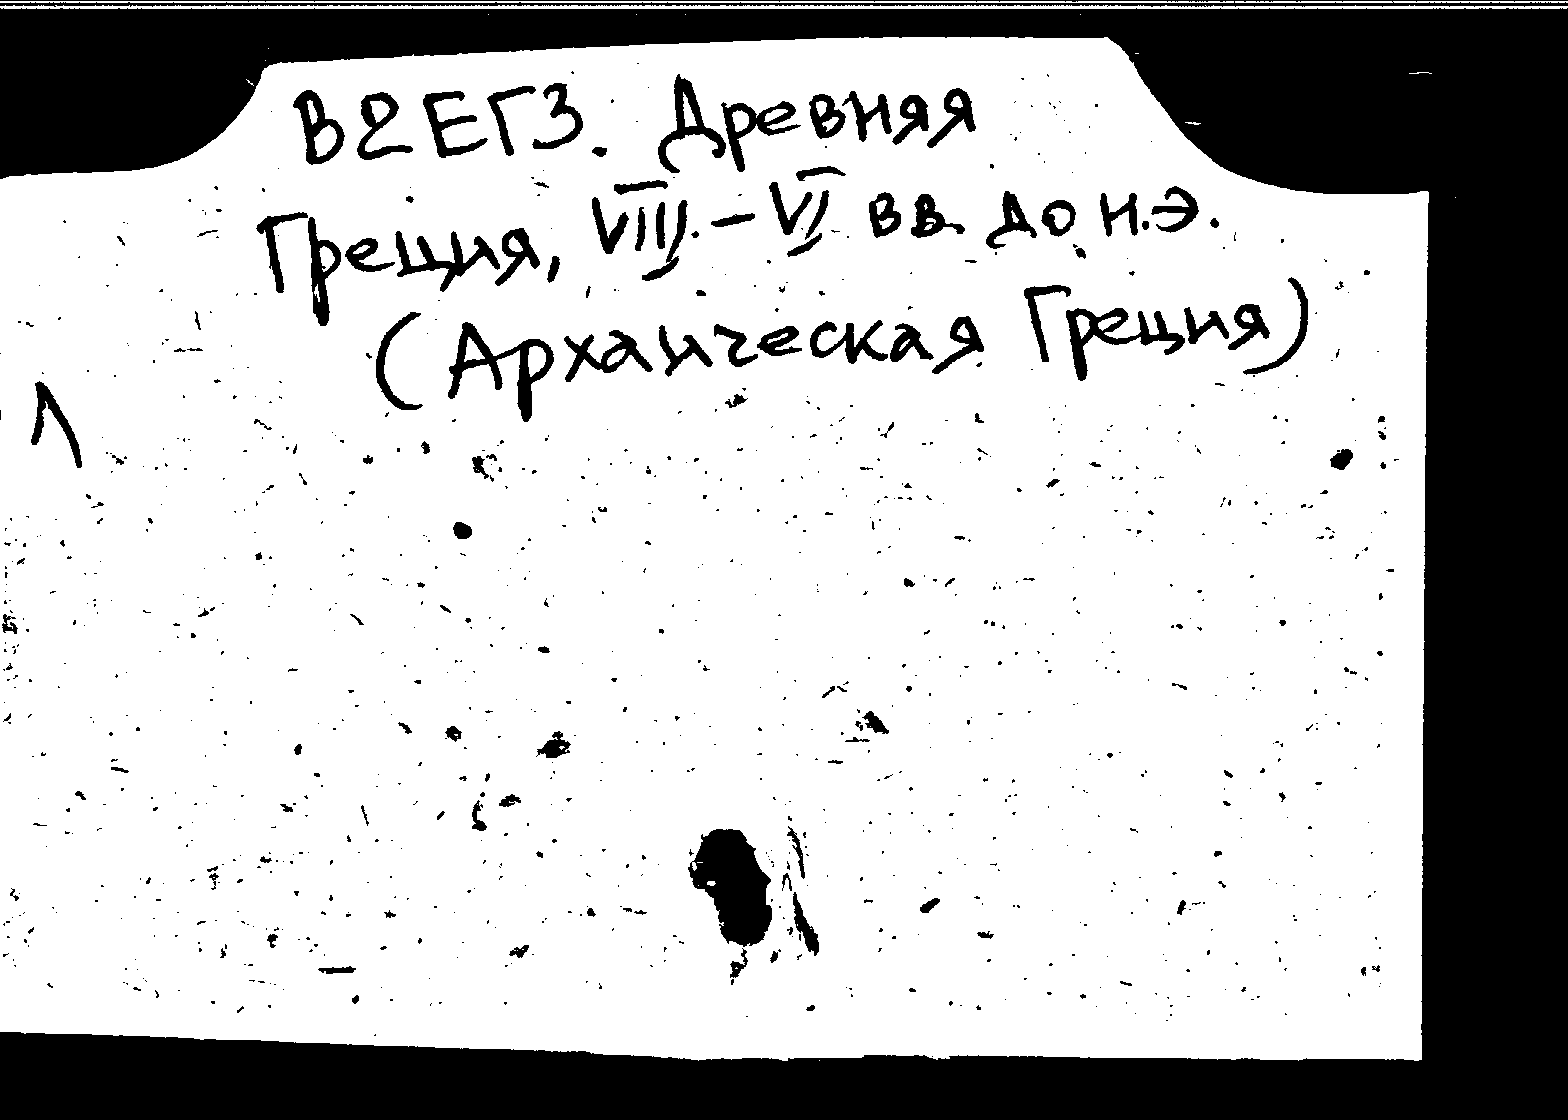 В2ЕГ3. Древняя
Греция, VIII-VI вв. до н.э.
(Архаическая Греция)